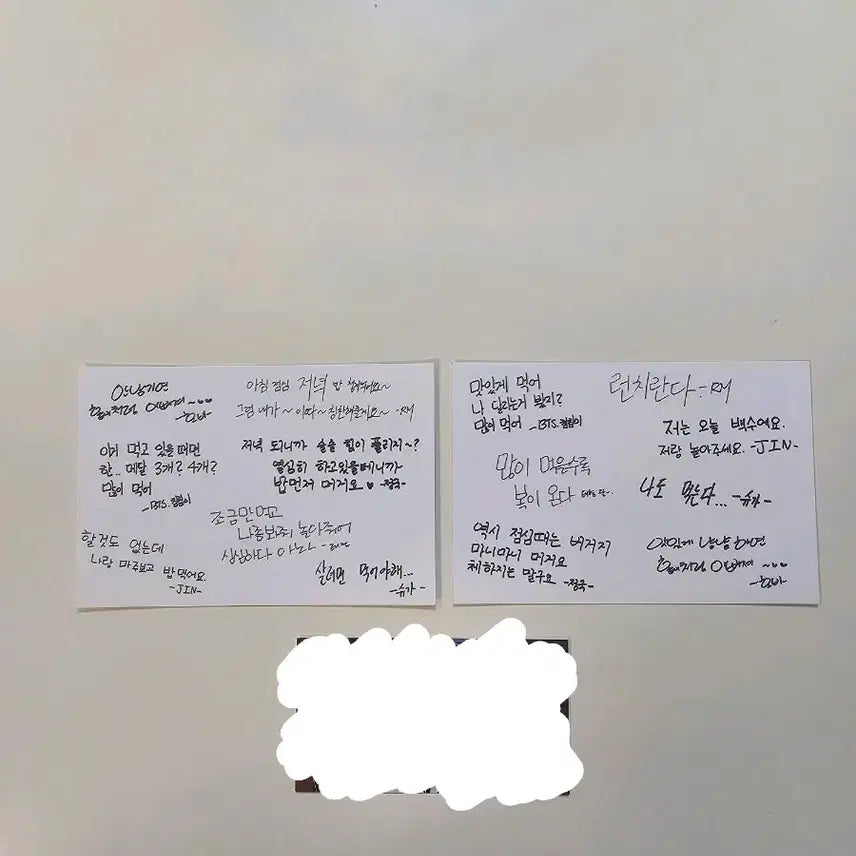 냠냠하면
호비처럼 이뻐져~
-호비
아침 점심 저녁 밥 챙겨먹어요~
그럼 내가~ 이따~ 칭찬해줄게요~ -RM
이거 먹고 있을때면
한.. 메달 3개? 4개?
많이 먹어
-BTS.침침이
저녁 되니까 슬슬 힘이 풀리지~?
열심히 하고있을테니까
밥먼저 머거요 -정국-
조금만 먹고
나중에 놀아줘
심심하다 아가
할것도 없는데
나랑 마주보고 밥먹어요
-JIN-
살려면 먹어야해...
-슈가-
맛있게 먹어
나 달리는거 봤지?
많이 먹어 -BTS.침침이
런치란다-RM
저는 오늘 백수에요.
저랑 놀아주세요.-JIN-
많이 먹을수록
복이 온다
나도 먹는다... -슈가-
역시 점심때는 버거지
마니마니 머거요
체하지는 말구요 -정국-
맛있게 냠냠하면
호비처럼 이뻐져~
-호비